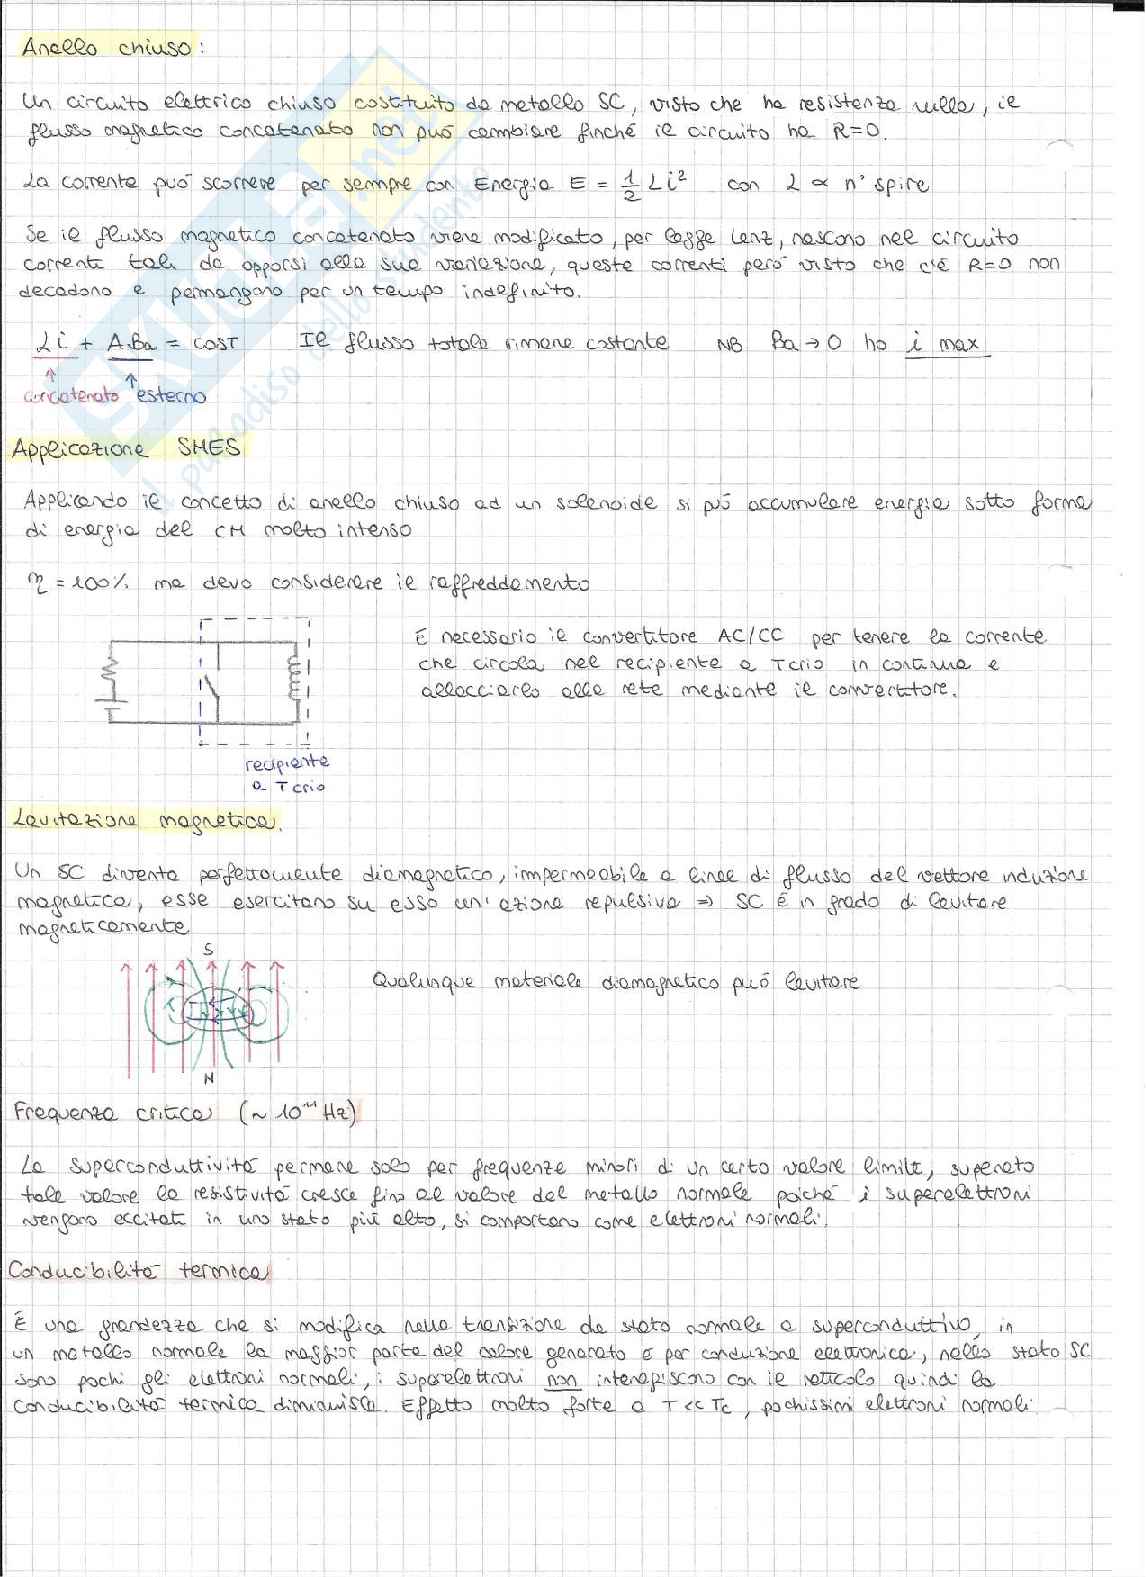 Anello chiuso:
Un circuito elettrico chiuso costituito da metallo SC, visto che ha resistenza nulla, il
flusso magnetico concatenato non può cambiare finché il circuito ha R=0.
La corrente può scorrere per sempre con Energia E = 1/2 Li² con L ∝ n° spire
Se il flusso magnetico concatenato viene modificato, per legge Lenz, nascono nel circuito
correnti tali da opporsi alla sua variazione, queste correnti però visto che c'è R=0 non
decadono e permangono per un tempo indefinito.
Li + A·Ba = cost Il flusso totale rimane costante NB Ba→0 ho i max
concatenato esterno
Applicazione SMES
Applicando il concetto di anello chiuso ad un solenoide si può accumulare energia sotto forma
di energia del CM molto intenso
η = 100% ma devo considerare il raffreddamento
È necessario il convertitore AC/CC per tenere la corrente
che circola nel recipiente a Tcrio in continua e
allacciarlo alla rete mediante il convertitore.
recipiente
a Tcrio
Levitazione magnetica.
Un SC diventa perfettamente diamagnetico, impermeabile a linee di flusso del vettore induzione
magnetica, esse esercitano su esso un'azione repulsiva ⇒ SC è in grado di levitare
magneticamente
S
Qualunque materiale diamagnetico può levitare
N
Frequenza critica (~ 10¹¹ Hz)
La superconduttività permane solo per frequenze minori di un certo valore limite, superato
tale valore la resistività cresce fino al valore del metallo normale poiché i superelettroni
vengono eccitati in uno stato più alto, si comportano come elettroni normali.
Conducibilità termica
È una grandezza che si modifica nella transizione da stato normale a superconduttivo, in
un metallo normale la maggior parte del calore generato è per conduzione elettronica, nello stato SC
sono pochi gli elettroni normali, i superelettroni non interagiscono con il reticolo quindi la
conducibilità termica diminuisce. Effetto molto forte a T<<Tc, pochissimi elettroni normali.